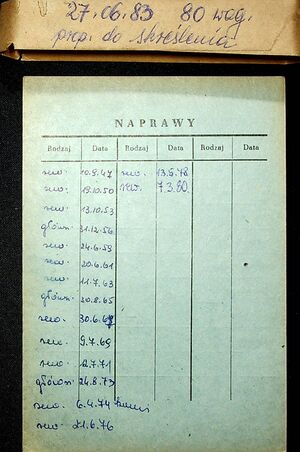 27.06.83 80 wag.
prop. do skreślenia
NAPRAWY
Rodzaj Data Rodzaj Data Rodzaj Data
rew. 10.9.47 rew. 13.5.78
rew. 19.10.50 rew. 7.3.80.
rew. 13.10.53
główn. 31.12.56
rew. 24.6.59
rew. 20.6.61
rew. 11.7.63
główn. 20.8.65
rew. 30.6.67
rew. 9.7.69
rew. 2.7.71
główn. 24.8.73
rew. 6.4.74
rew. 21.6.76